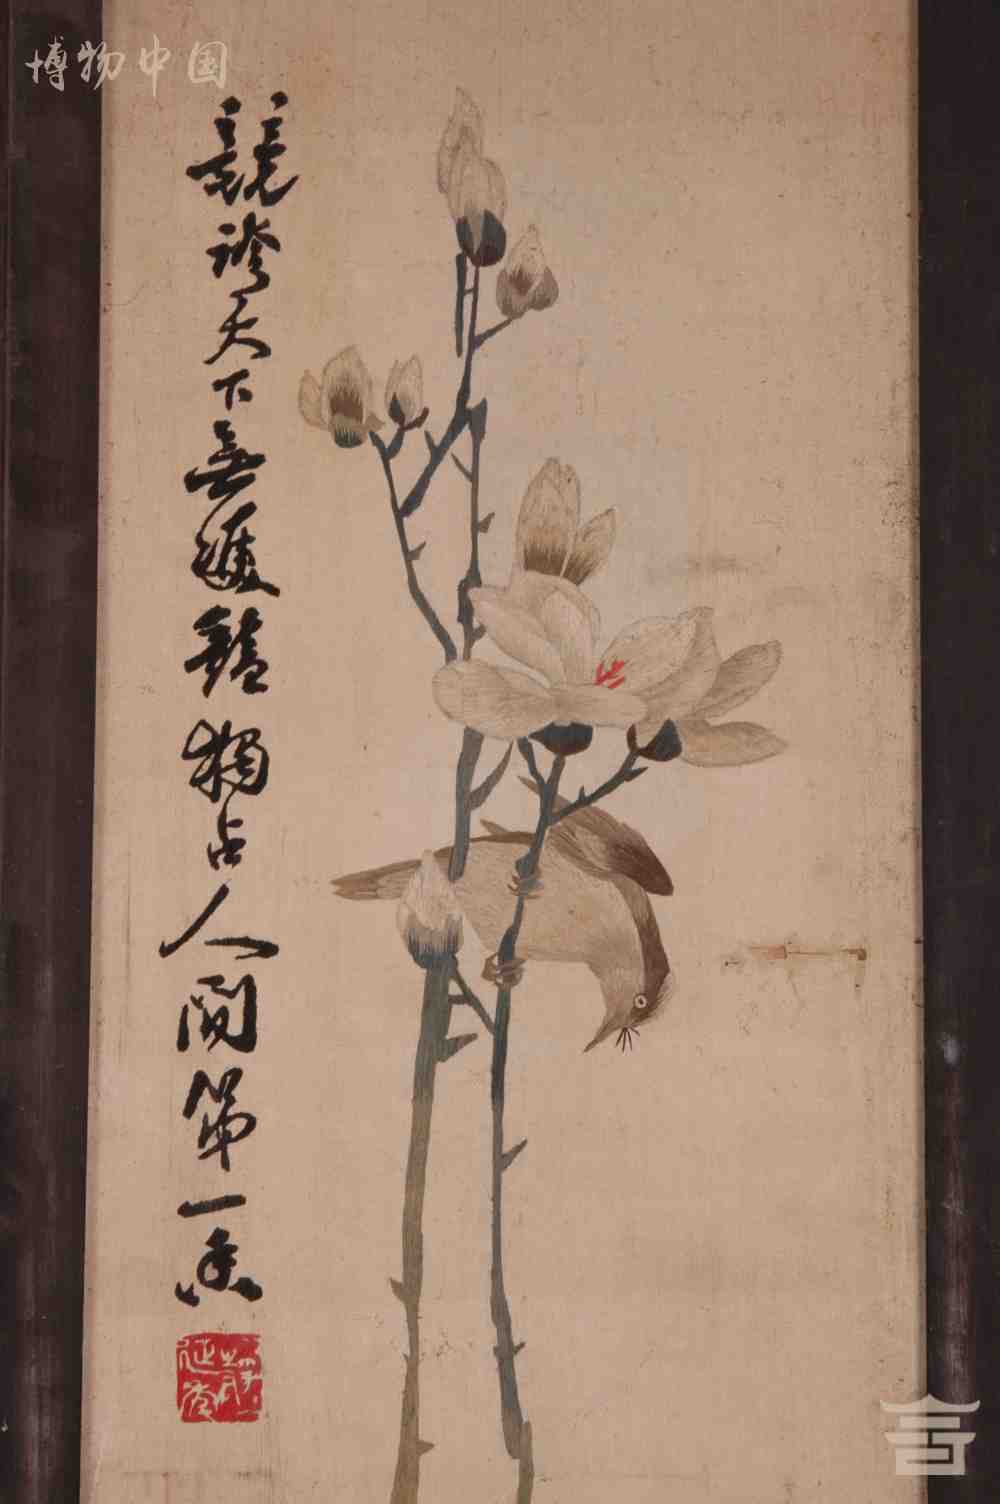 博物中国
競誇天下無雙艷獨占人間第一香